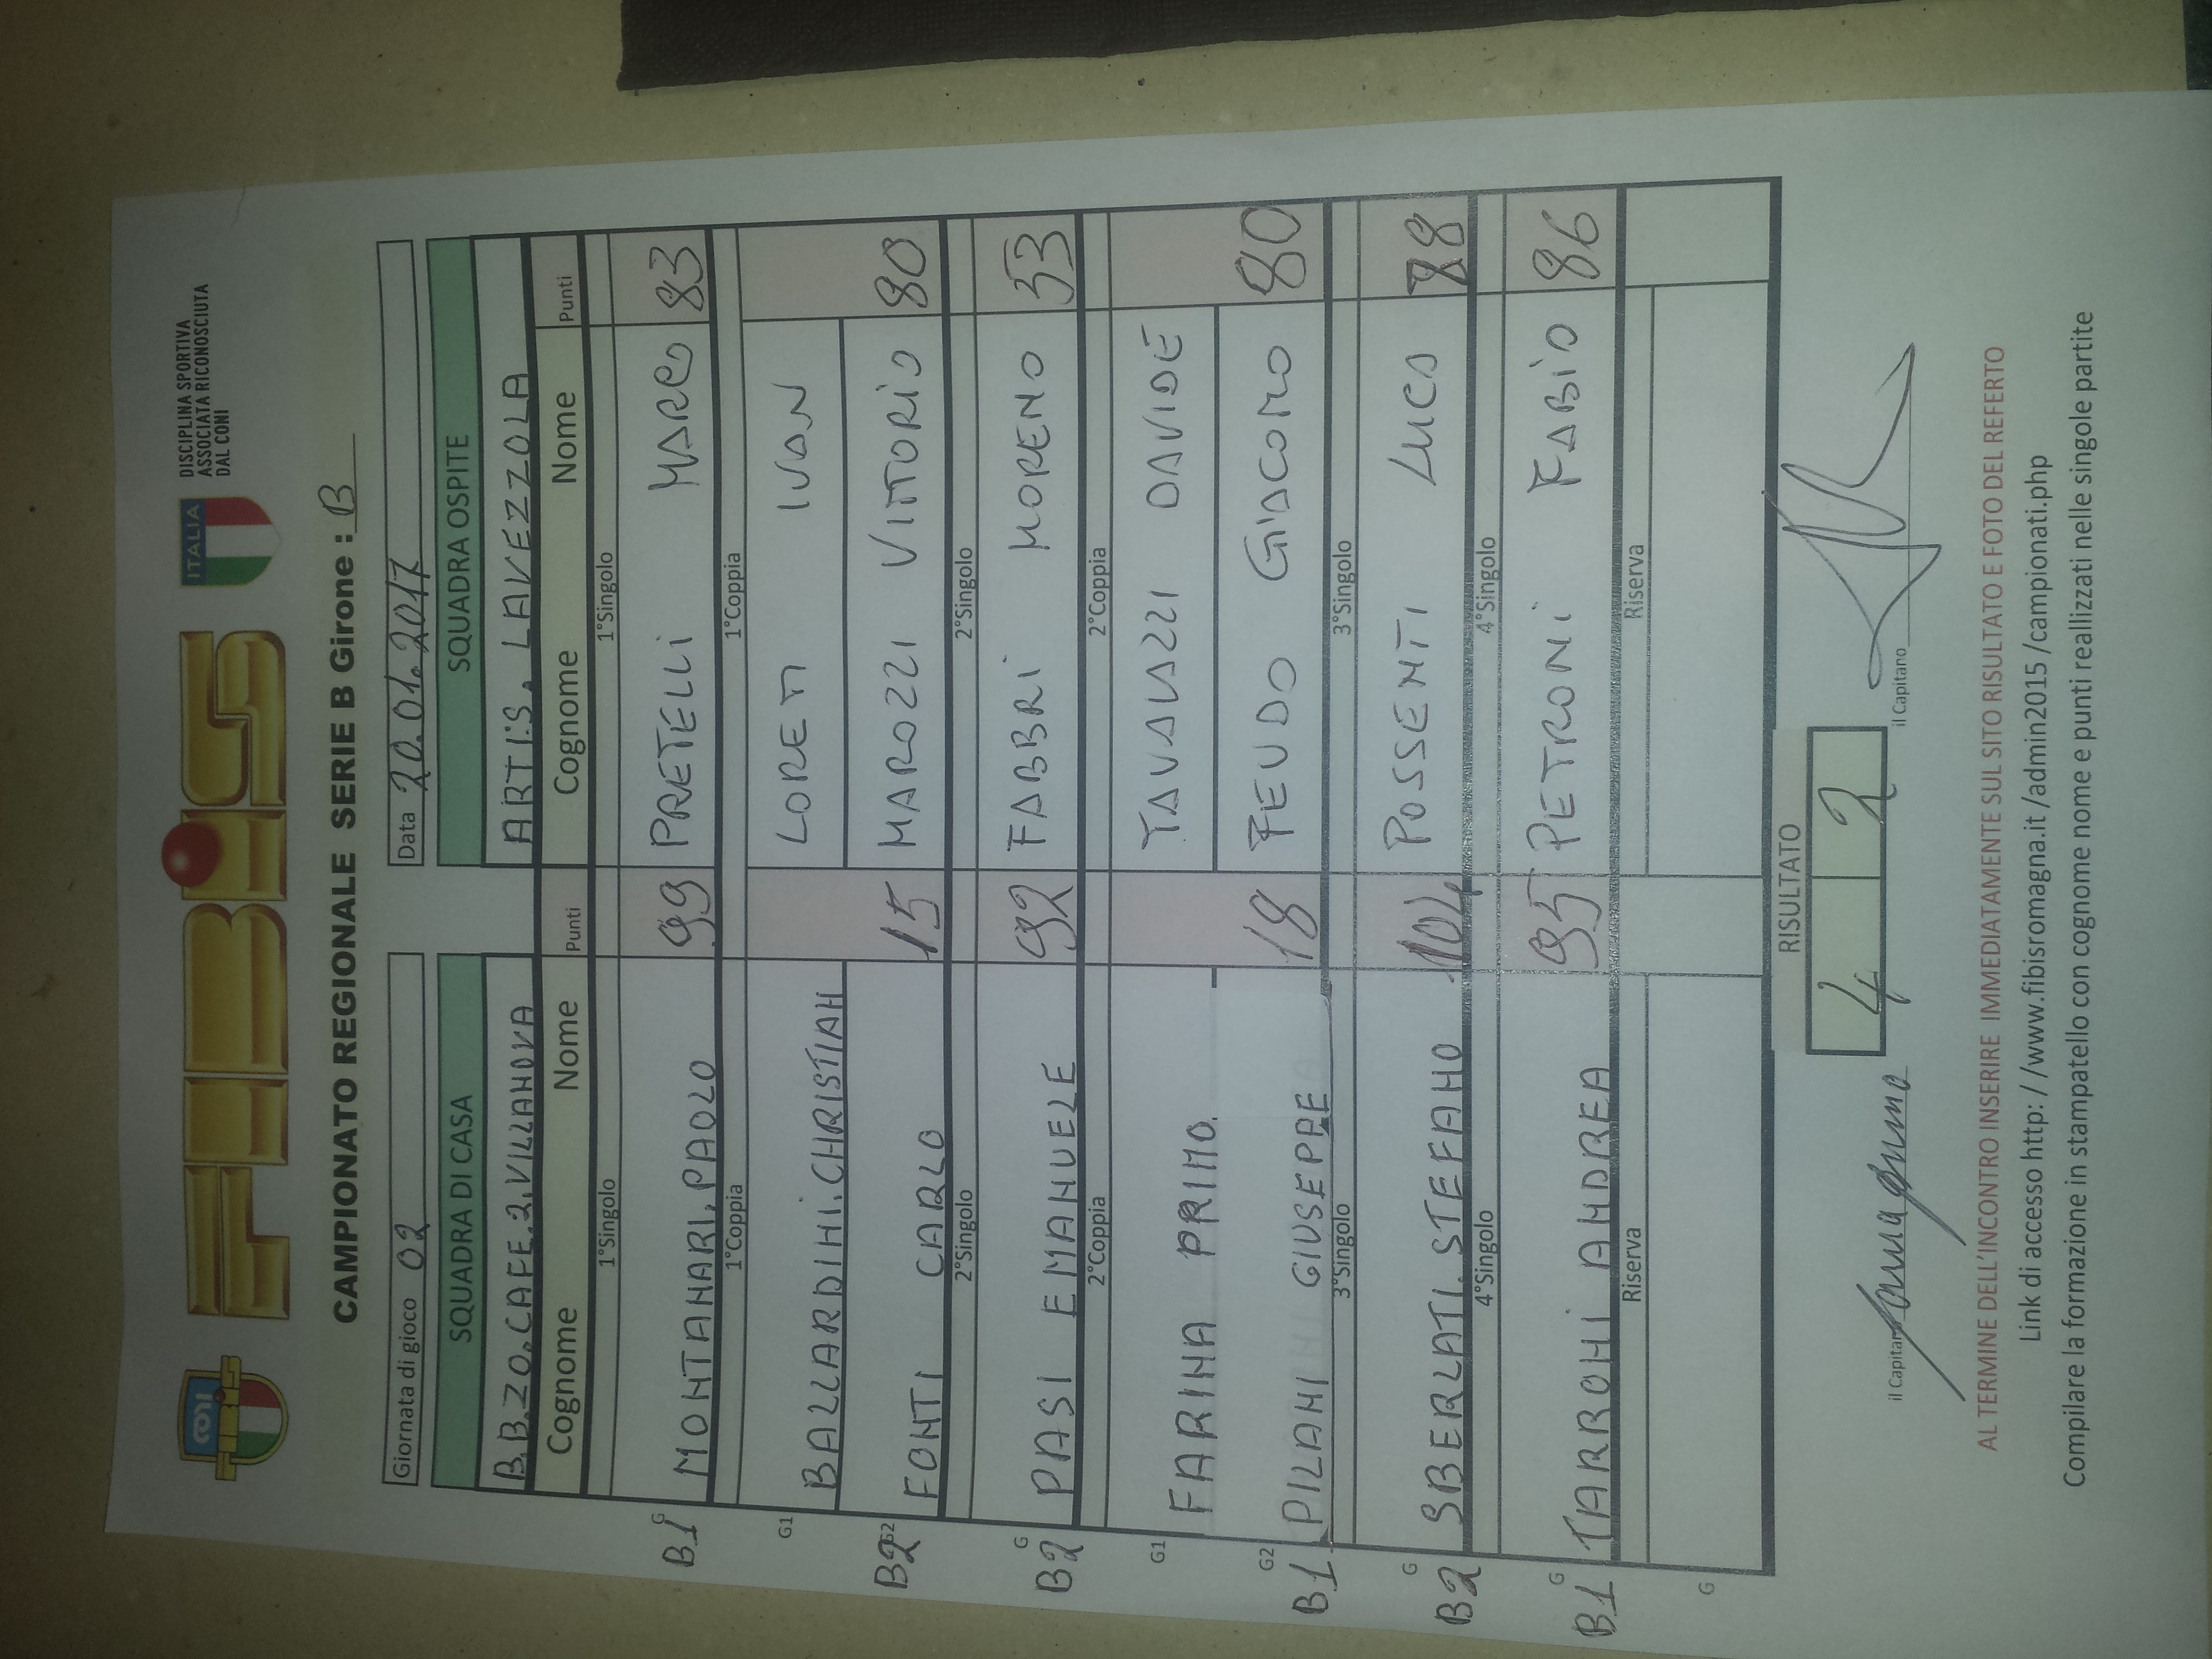 CONI
FIBiS
FIBiS
ITALIA
DISCIPLINA SPORTIVA
ASSOCIATA RICONOSCIUTA
DAL CONI
CAMPIONATO REGIONALE SERIE B Girone : B
Giornata di gioco 02 Data 20.01.2017
SQUADRA DI CASA SQUADRA OSPITE
B.B.ZO.CAFE.2.VILLANOVA ARTIS. LAVEZZOLA
Cognome Nome Punti Cognome Nome Punti
1°Singolo 1°Singolo
B1 G MONTANARI.PAOLO 99 PRETELLI MARCO 83
1°Coppia 1°Coppia
G1 BALLARDINI.CHRISTIAN LORETI IVAN
B2 G2 FONTI CARLO 15 MAROZZI VITTORIO 80
2°Singolo 2°Singolo
B2 G PASI EMANUELE 92 FABBRI MORENO 53
2°Coppia 2°Coppia
G1 FARINA PRIMO. TAVALAZZI DAVIDE
B1 G2 PILANI GIUSEPPE 18 FEUDO GIACOMO 80
3°Singolo 3°Singolo
B2 G SBERLATI.STEFANO 104 POSSENTI LUCA 88
4°Singolo 4°Singolo
B1 G TARRONI ANDREA 95 PETRONI FABIO 86
Riserva Riserva
G
RISULTATO
4 2
il Capitano il Capitano
AL TERMINE DELL'INCONTRO INSERIRE IMMEDIATAMENTE SUL SITO RISULTATO E FOTO DEL REFERTO
Link di accesso http: //www.fibisromagna.it /admin2015 /campionati.php
Compilare la formazione in stampatello con cognome nome e punti reallizzati nelle singole partite